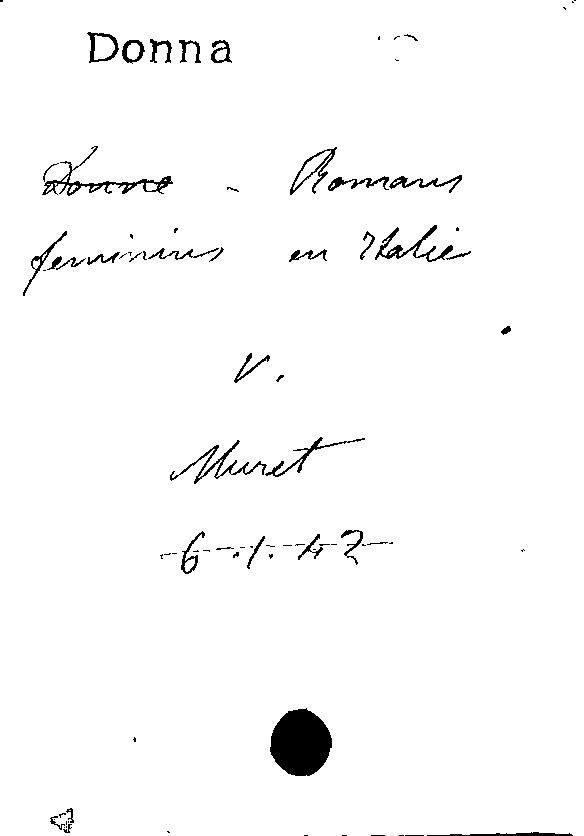 Donna
Donne - Romans
feminins en Italie
V.
Muret
6.1.42